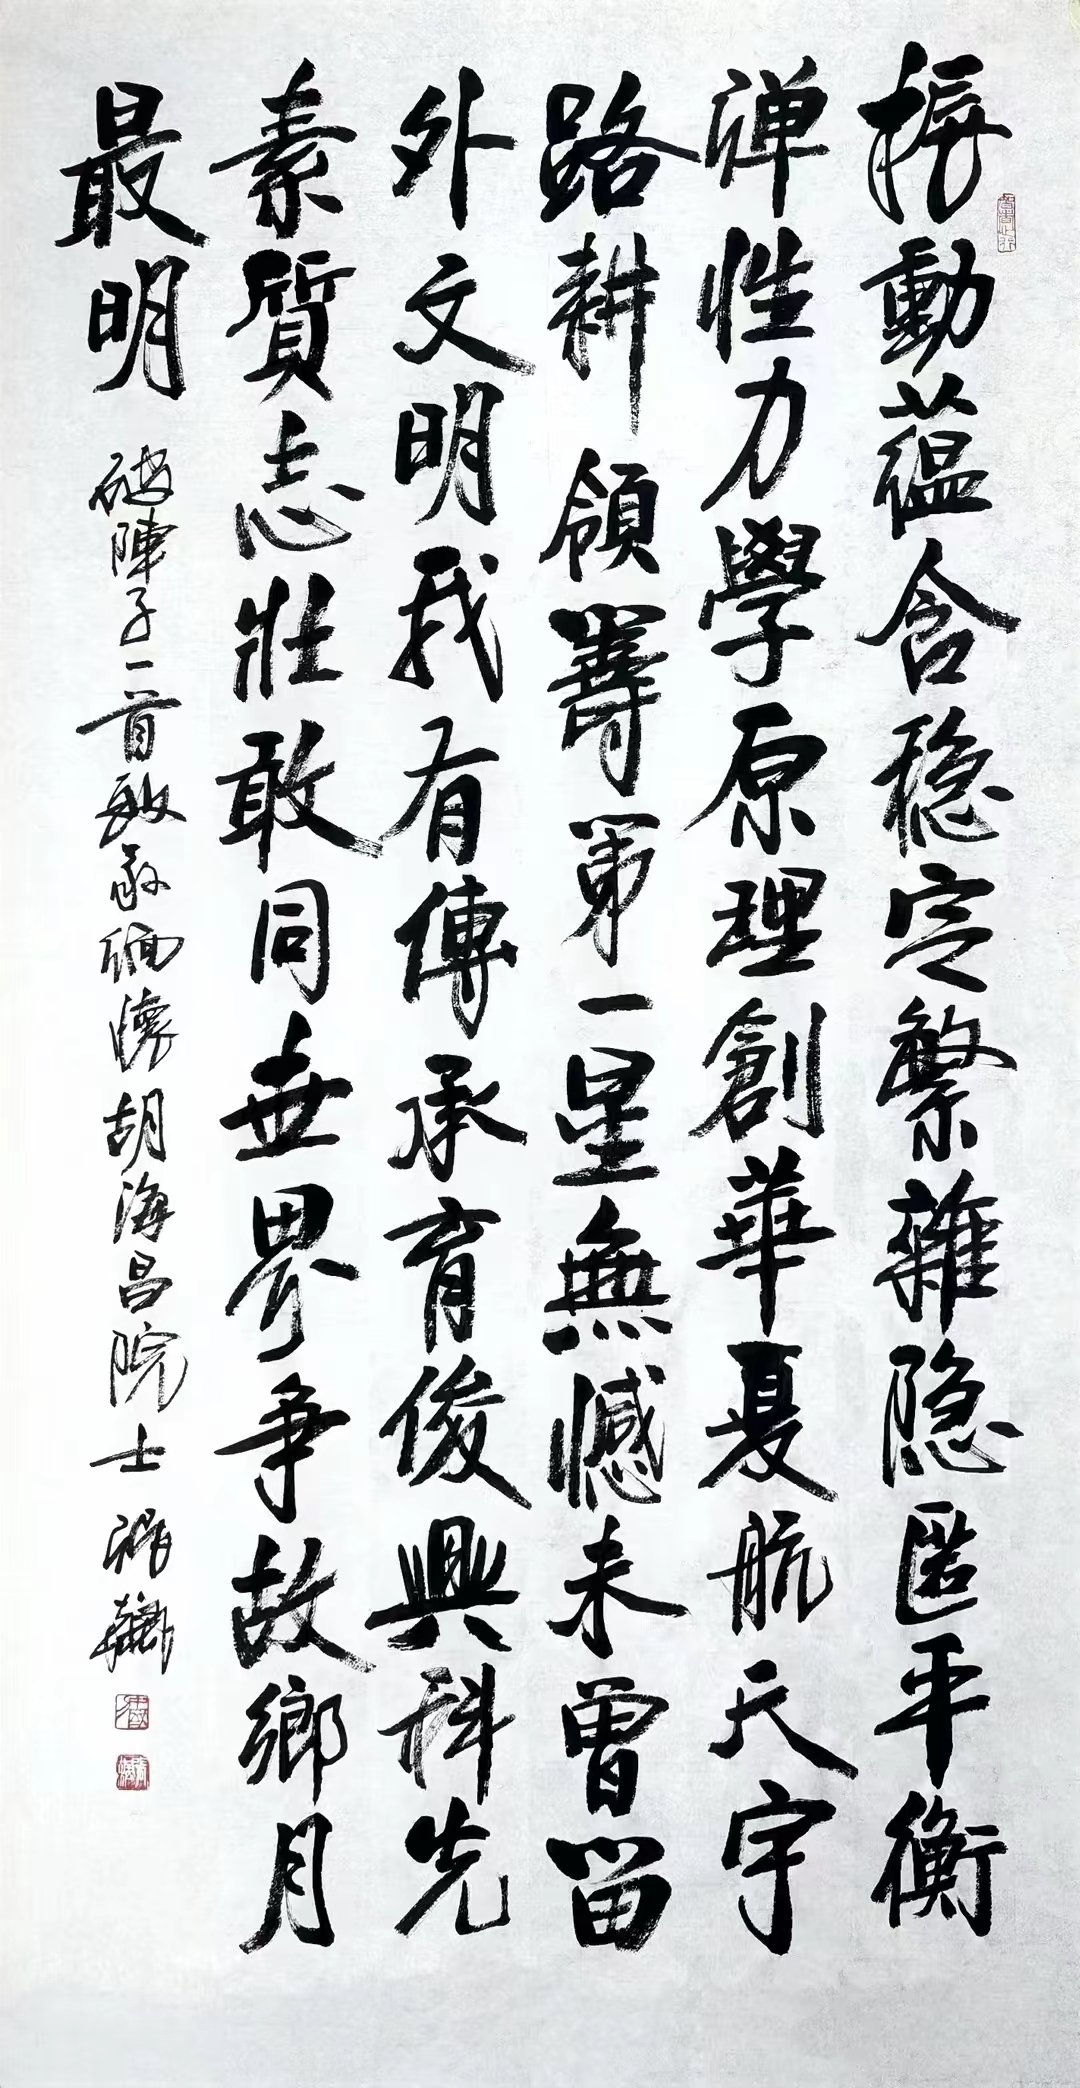 振動蕴含稳定繁雜隐匿平衡
弹性力學原理創華夏航天宇
路耕領籌第一星無憾未曾留
外文明我有傳承育俊興科先
素質志壯敢同世界争故鄉月
最明 破陣子一首敬承缅懷胡海昌院士